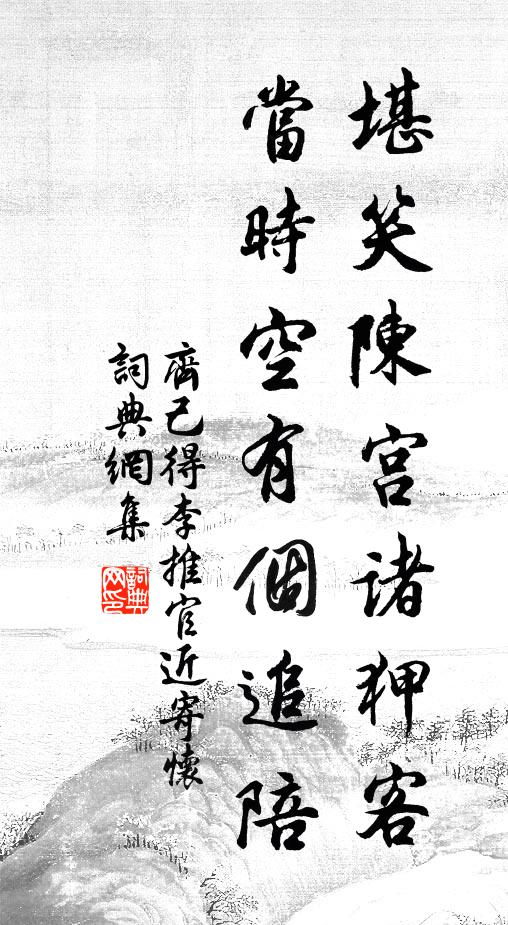 堪笑陳宮諸狎客
當時空有個追陪
齊己得李推官近寄懷
詞典網集
詞典网印